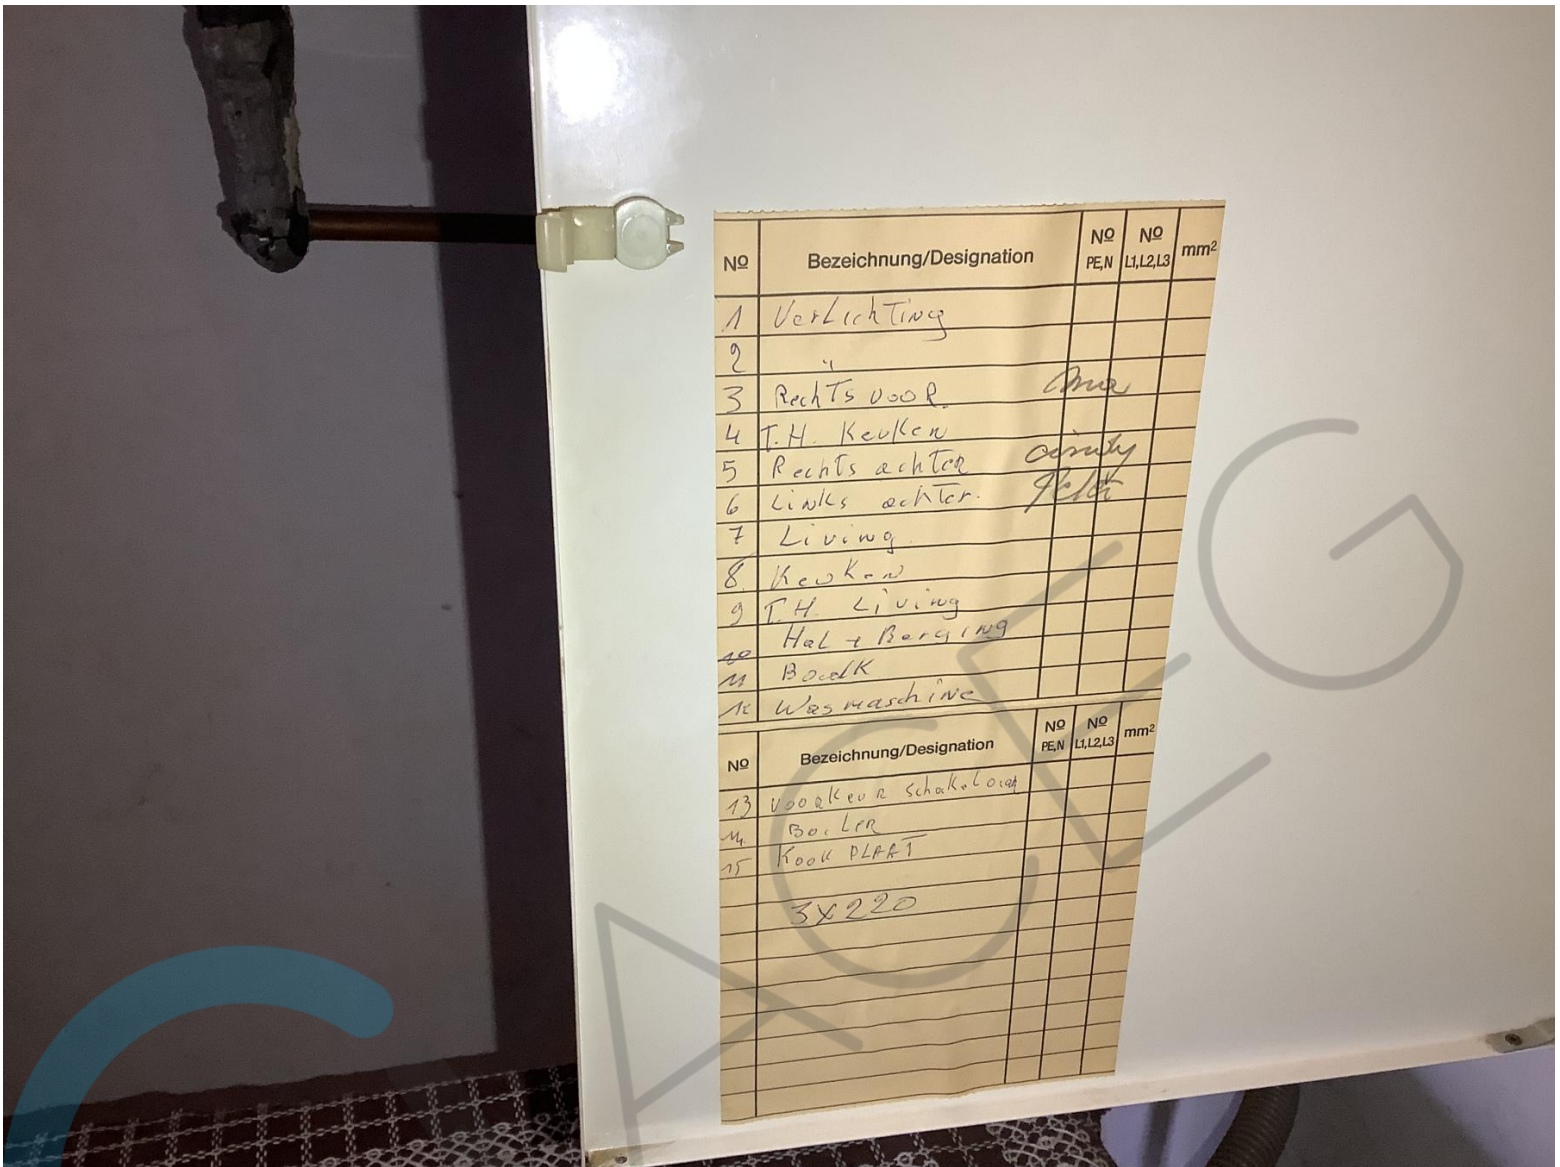 Nº Bezeichnung/Designation Nº PE,N Nº L1,L2,L3 mm²
1 Verlichting
2 "
3 Rechts voor.
4 T.H. Keuken
5 Rechts achter
6 Links achter.
7 Living
8. Keuken
9 T.H. Living
10 Hal + Berging
11 Badk
12 Wasmaschine
Nº Bezeichnung/Designation Nº PE,N Nº L1,L2,L3 mm²
13 voorkeur schakelaar
14. Boiler
15 Kook PLAAT
3x220
ACEG